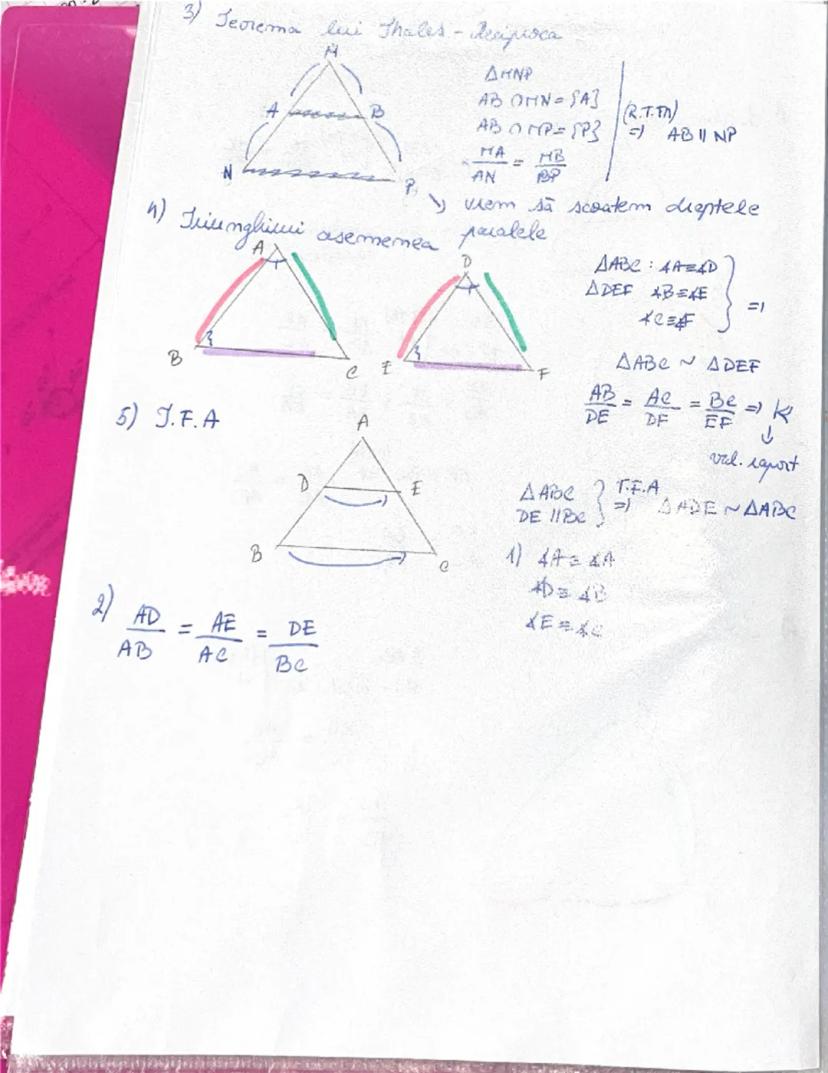 3) Teorema lui Thales - Reciproca
M
A B
N P
ΔMNP
AB ∩ MN = {A}
AB ∩ MP = {P}
MA/AN = MB/BP
(R.T.Th) => AB || NP
↘ vrem să scoatem dreptele
paralele
4) Triunghiuri asemenea
A
B C
D
E F
ΔABC : ∢A≡∢D
ΔDEF ∢B≡∢E
∢C≡∢F
=>
ΔABC ~ ΔDEF
AB/DE = AC/DF = BC/EF => K
↓
val. raport
5) T.F.A
A
D E
B C
ΔABC
DE || BC
T.F.A => ΔADE ~ ΔABC
1) ∢A ≡ ∢A
∢D ≡ ∢B
∢E ≡ ∢C
2) AD/AB = AE/AC = DE/BC